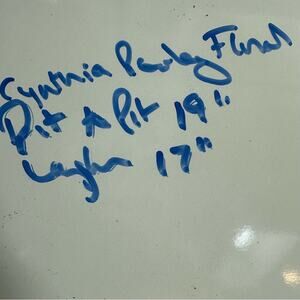 Cynthia Rowley Floral
Pit to Pit 19"
Length 17"